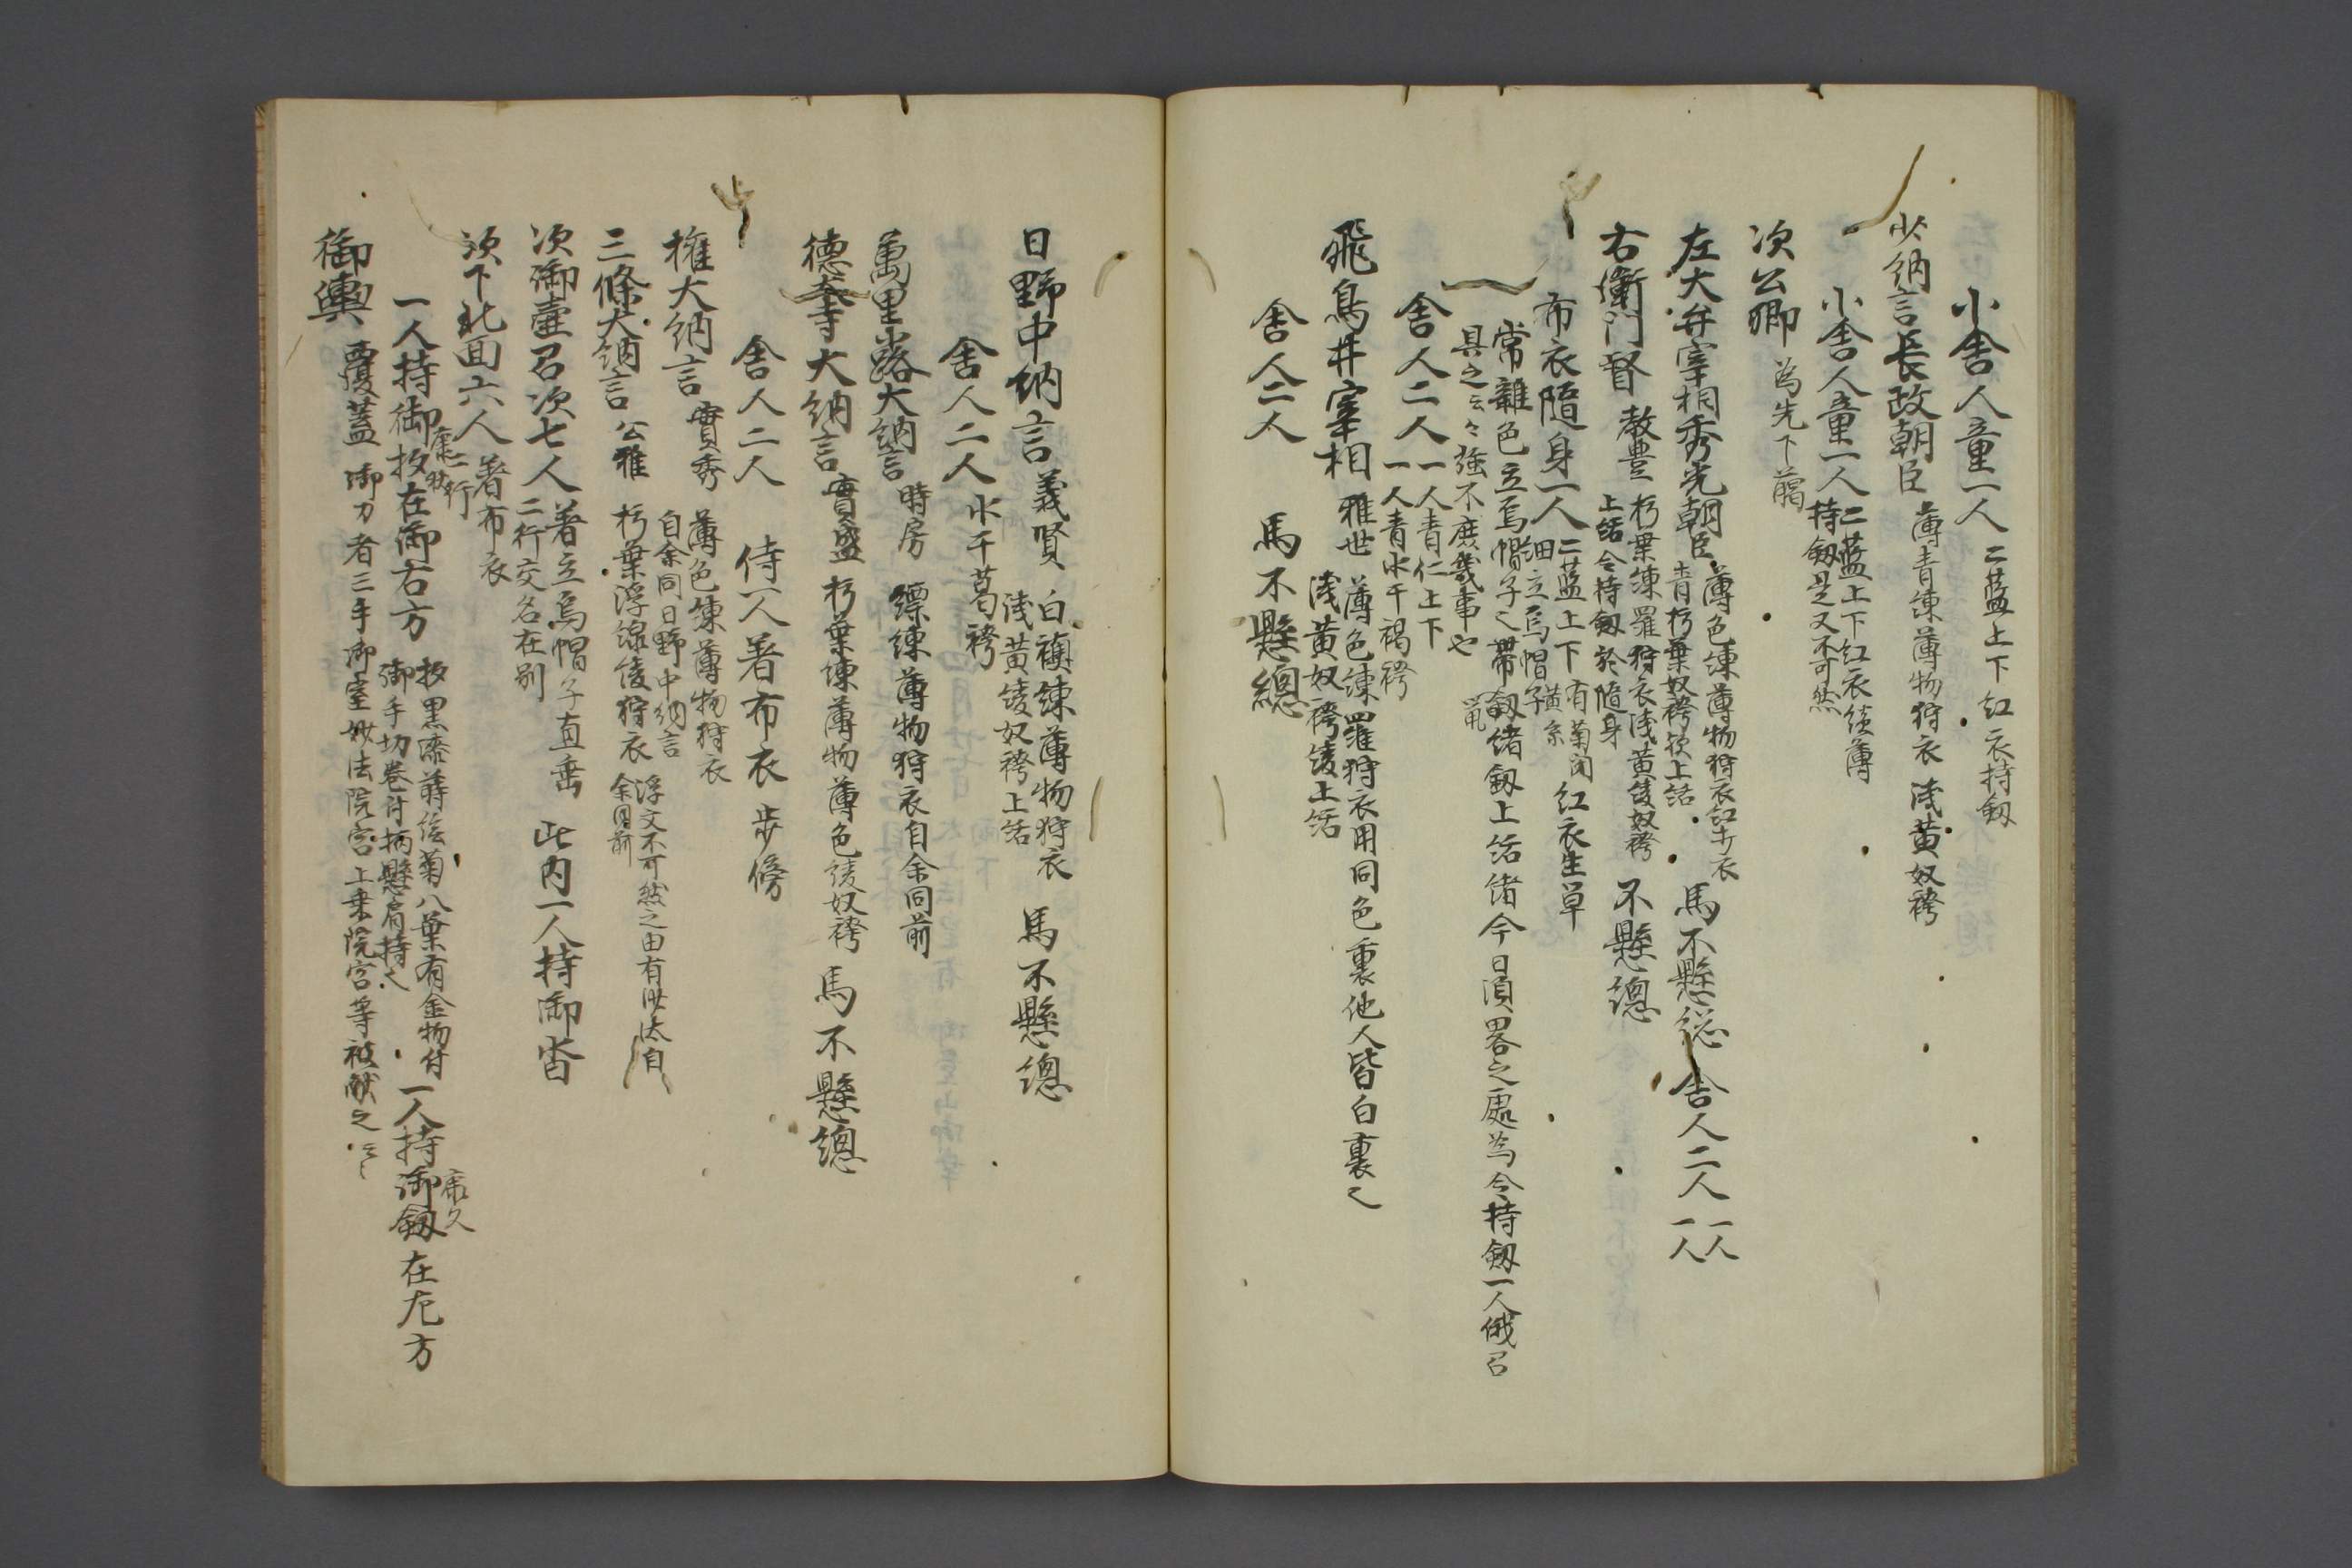 小舎人童一人 二藍上下 紅衣持釼
少納言長政朝臣 薄青練薄物狩衣 浅黄奴袴
小舎人童一人 二藍上下紅衣
持釼是又不可然
次公卿 為先下臈
左大弁宰相秀光朝臣 薄色練薄物狩衣紅出衣
青朽葉奴袴 上結
馬不懸総 舎人二人 一人
一人
右衛門督 教豊 朽葉練羅狩衣浅黄綾奴袴
上結令持釼於随身
不懸總
布衣随身一人 二藍上下有菊閇
細立烏帽子 黄糸
紅衣生単
常雑色立烏帽子之帯釼緒釼上結緒今日須畧之處為令持釼一人俄召
具之云々強不庶幾事也
舎人二人 一人青仁上下
一人青水干褐袴
飛鳥井宰相 雅世 薄色練羅狩衣用同色裏他人皆白裏也
浅黄奴袴綾上結
舎人二人 馬不懸總
日野中納言 義賢 白襖練薄物狩衣
浅黄綾奴袴上結
馬不懸總
舎人二人 水干葛袴
萬里小路大納言 時房 縹練薄物狩衣自余同前
徳大寺大納言 實盛 朽葉練薄物薄色綾奴袴 馬不懸總
舎人二人 侍一人著布衣 歩傍
権大納言 實秀 薄色練薄物狩衣
自余同日野中納言
三條大納言 公雅 朽葉浮線綾狩衣 浮文不可然之由有沙汰自
余同前
次御壷召次七人 著立烏帽子直垂
二行交名在別
此内一人持御沓
次下北面六人 著布衣
二行
一人持御杖在御右方 杖黒漆蒔絵菊八葉有金物付
御手切巻付柄懸肩持之
一人持御釼 康久 在左方
御輿 覆蓋 御力者三手御室妙法院宮上乗院宮等被献之云々